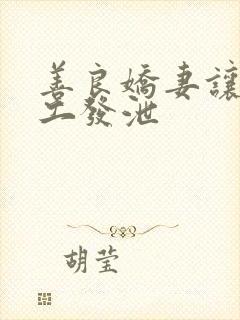 善良嬌妻讓
工發泄
胡莹